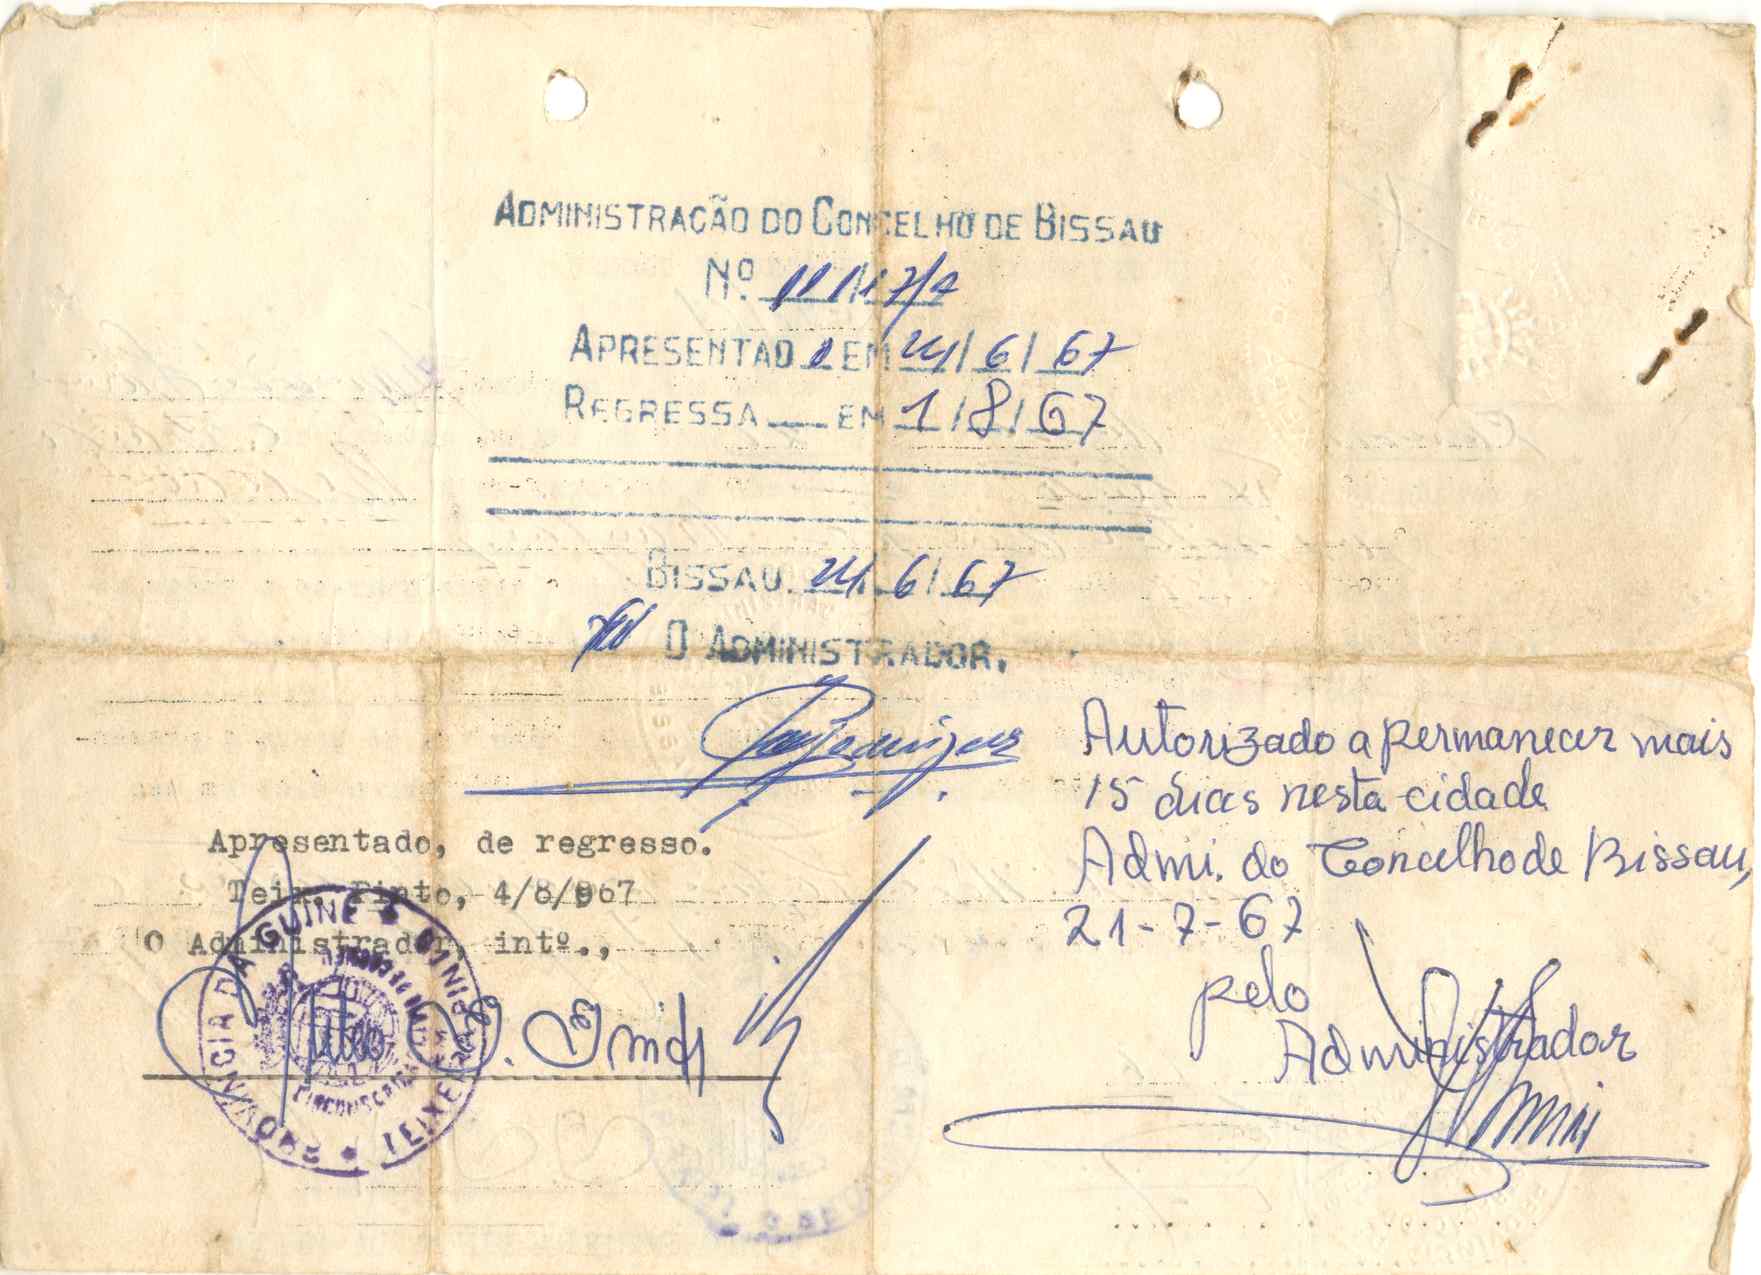 ADMINISTRAÇÃO DO CONCELHO DE BISSAU
Nº
APRESENTADO EM 24/6/67
REGRESSA EM 1/8/67
BISSAU. 24/6/67
O ADMINISTRADOR.
Autorizado a permanecer mais
15 dias nesta cidade
Admi. do Concelho de Bissau,
21-7-67
pelo
Administrador
Apresentado, de regresso.
Teix. Pinto, 4/8/967
O Administrador, intº.,
PROVINCIA DA GUINE
TEIXEIRA PINTO